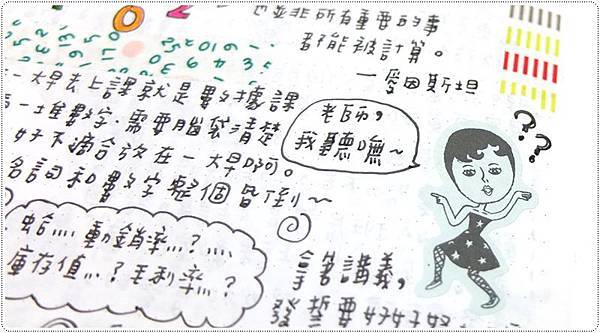 也並非所有重要的事
都能被計算。
—愛因斯坦
一大早去上課就是數據課
一堆數字,需要腦袋清楚
好不適合放在一大早啊。
名詞和數字整個昏倒~
老師,
我聽嘸~
??
蛤....動銷率...?....
庫存值...?毛利率...?
拿著講義,
發誓要好好好